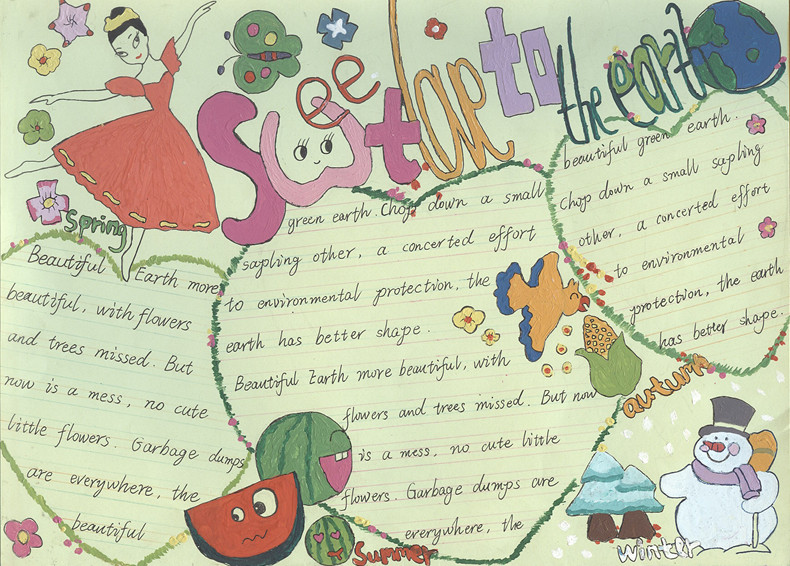 Sweet love to the earth
spring
Beautiful Earth more
beautiful, with flowers
and trees missed. But
now is a mess, no cute
little flowers. Garbage dumps
are everywhere, the
beautiful
green earth. Chop down a small
sapling other, a concerted effort
to environmental protection, the
earth has better shape.
Beautiful Earth more beautiful, with
flowers and trees missed. But now
is a mess, no cute little
flowers. Garbage dumps are
everywhere, the
summer
beautiful green earth.
Chop down a small sapling
other, a concerted effort
to environmental
protection, the earth
has better shape.
autumn
winter